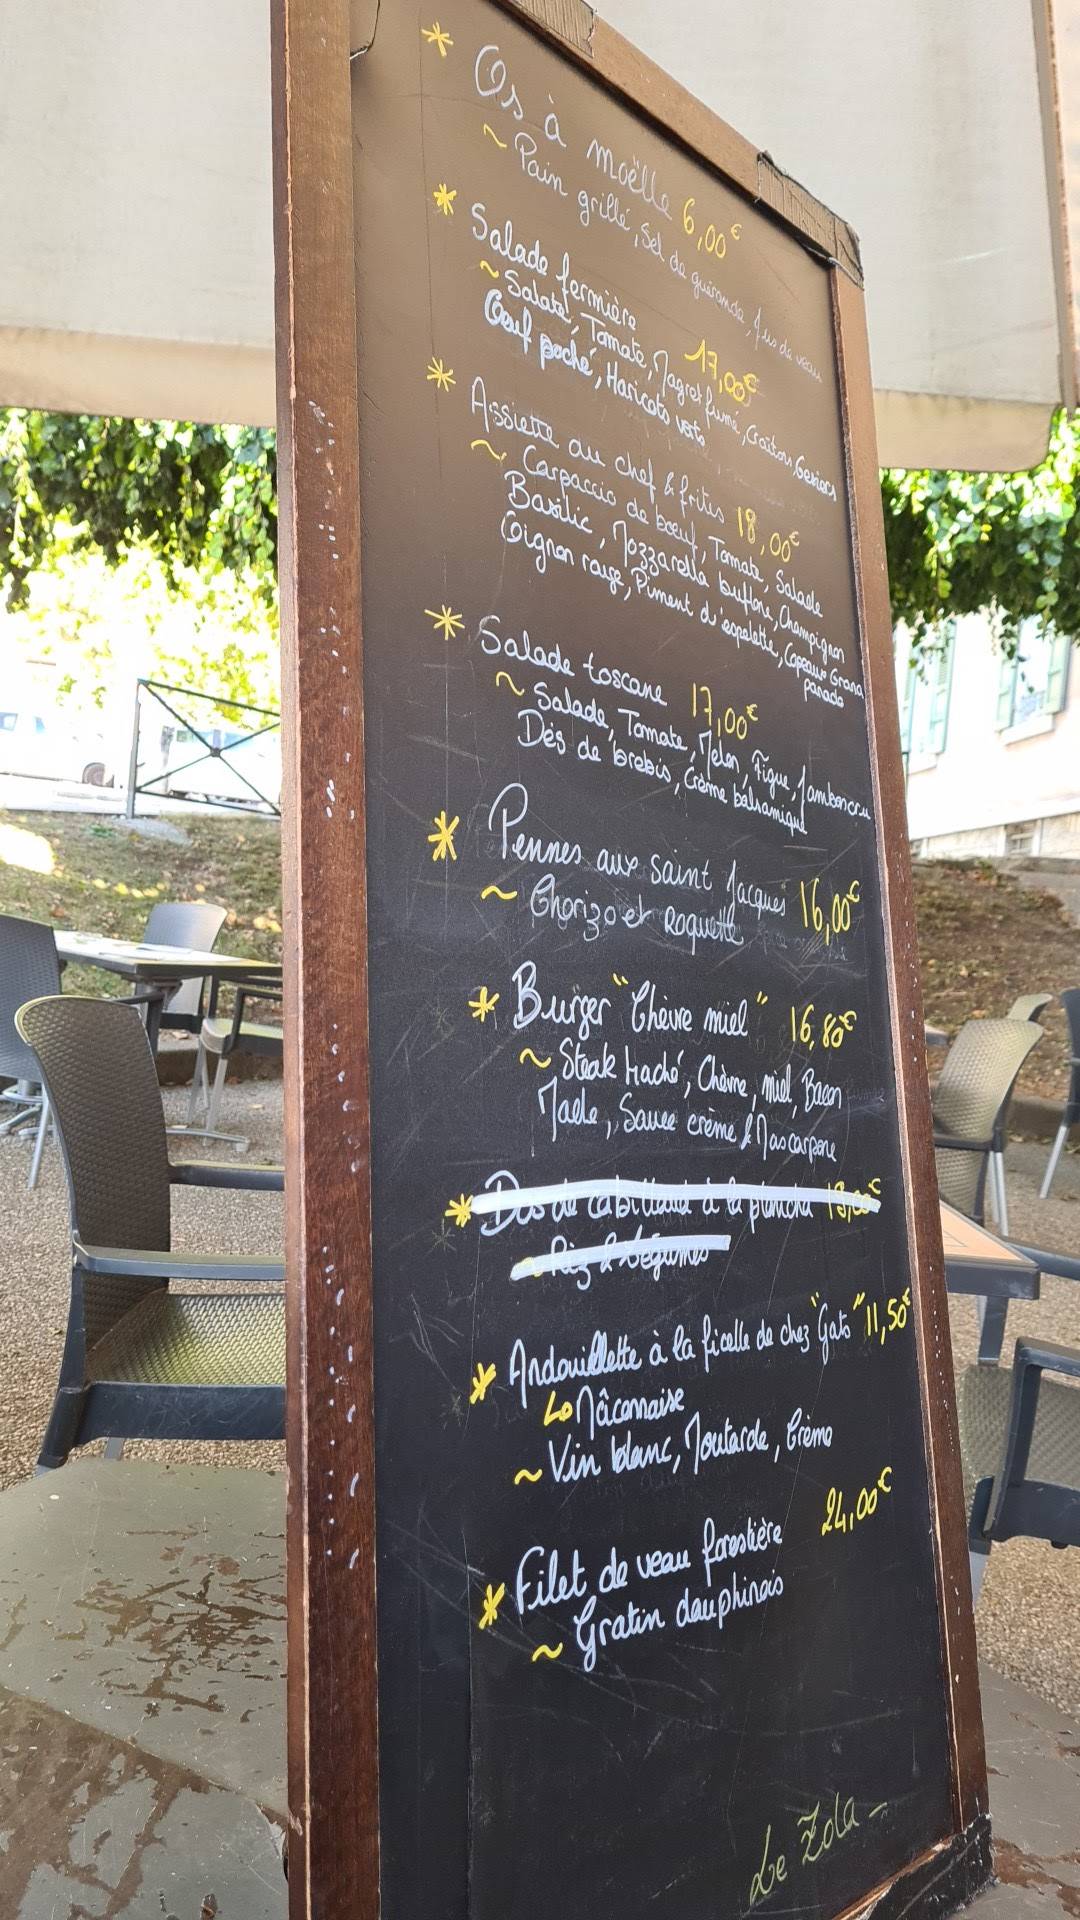 * Os à moëlle 6,00€
~ Pain grillé, sel de guérande, jus de veau
* Salade fermière 17,00€
~ Salade, Tomate, Magret fumé, Croûtons, Gesiers
Oeuf poché, Haricots verts
* Assiette du chef & frites 18,00€
~ Carpaccio de boeuf, Tomate, Salade
Basilic, Mozzarella buflone, Champignon
Oignon rouge, Piment d'espelette, Capeaux Grana
panado
* Salade toscane 17,00€
~ Salade, Tomate, Melon, Figue, Jambon cru
Dés de brebis, Crème balsamique
* Pennes aux saint Jacques 16,00€
~ Chorizo et Roquette
* Burger "Chèvre miel" 16,80€
~ Steak haché, Chèvre, miel, Bacon
Mache, Sauce crème & Mascarpone
* Dos de cabillaud à la plancha
~ Riz & légumes
* Andouillette à la ficelle de chez "Gats" 11,50€
Lo Mâconnaise
~ Vin blanc, Moutarde, Crème
* Filet de veau forestière 24,00€
~ Gratin dauphinois
Le Zola -